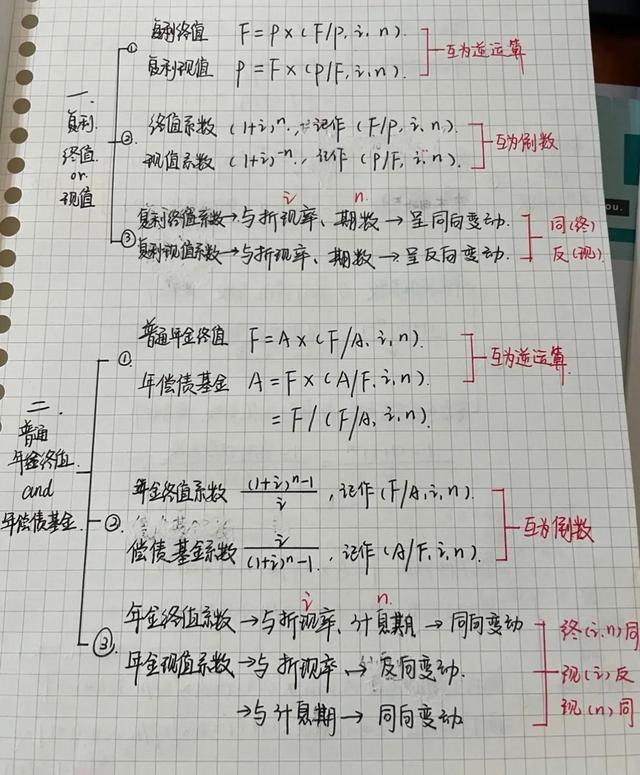 一.
复利
终值
or
现值
① 复利终值 F=P×(F/P,i,n).
复利现值 P=F×(P/F,i,n).
互为逆运算
② 终值系数 (1+i)ⁿ,记作 (F/P,i,n).
现值系数 (1+i)⁻ⁿ,记作 (P/F,i,n).
互为倒数
i n.
③ 复利终值系数→与折现率、期数→呈同向变动.
复利现值系数→与折现率、期数→呈反向变动.
同(终)
反(现).
you.
二.
普通
年金终值
and
年偿债基金.
① 普通年金终值 F=A×(F/A,i,n).
年偿债基金 A=F×(A/F,i,n).
=F/(F/A,i,n).
互为逆运算.
② 年金终值系数 (1+i)ⁿ-1/i,记作(F/A,i,n).
偿债基金系数 i/(1+i)ⁿ-1,记作(A/F,i,n).
互为倒数
i n.
③ 年金终值系数→与折现率、计息期→同向变动
年金现值系数→与折现率→反向变动.
→与计息期→同向变动
终(i,n)同
现(i)反
现(n)同